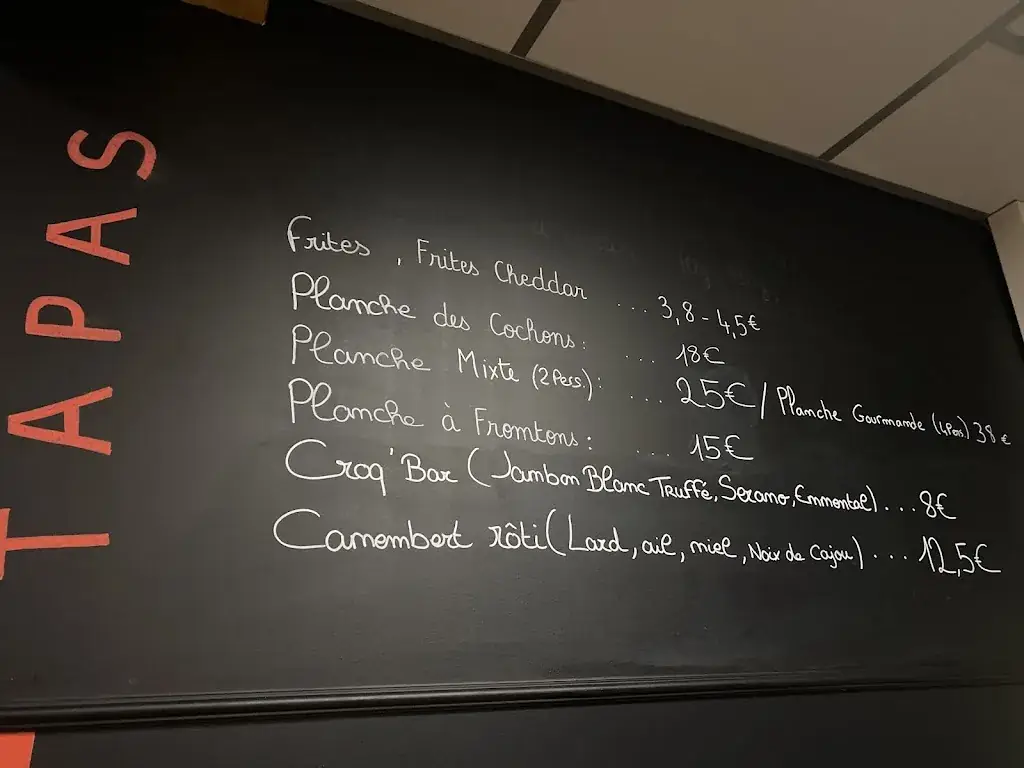 TAPAS
Frites, Frites Cheddar ... 3,8 - 4,5€
Planche des Cochons: ... 18€
Planche Mixte (2 Pers): ... 25€ / Planche Gourmande (4 Pers) 38€
Planche à Fromtons: ... 15€
Croq'Bar (Jambon Blanc Truffé, Serano, Emmental) ... 8€
Camembert rôti (Lard, ail, miel, Noix de Cajou) ... 12,5€